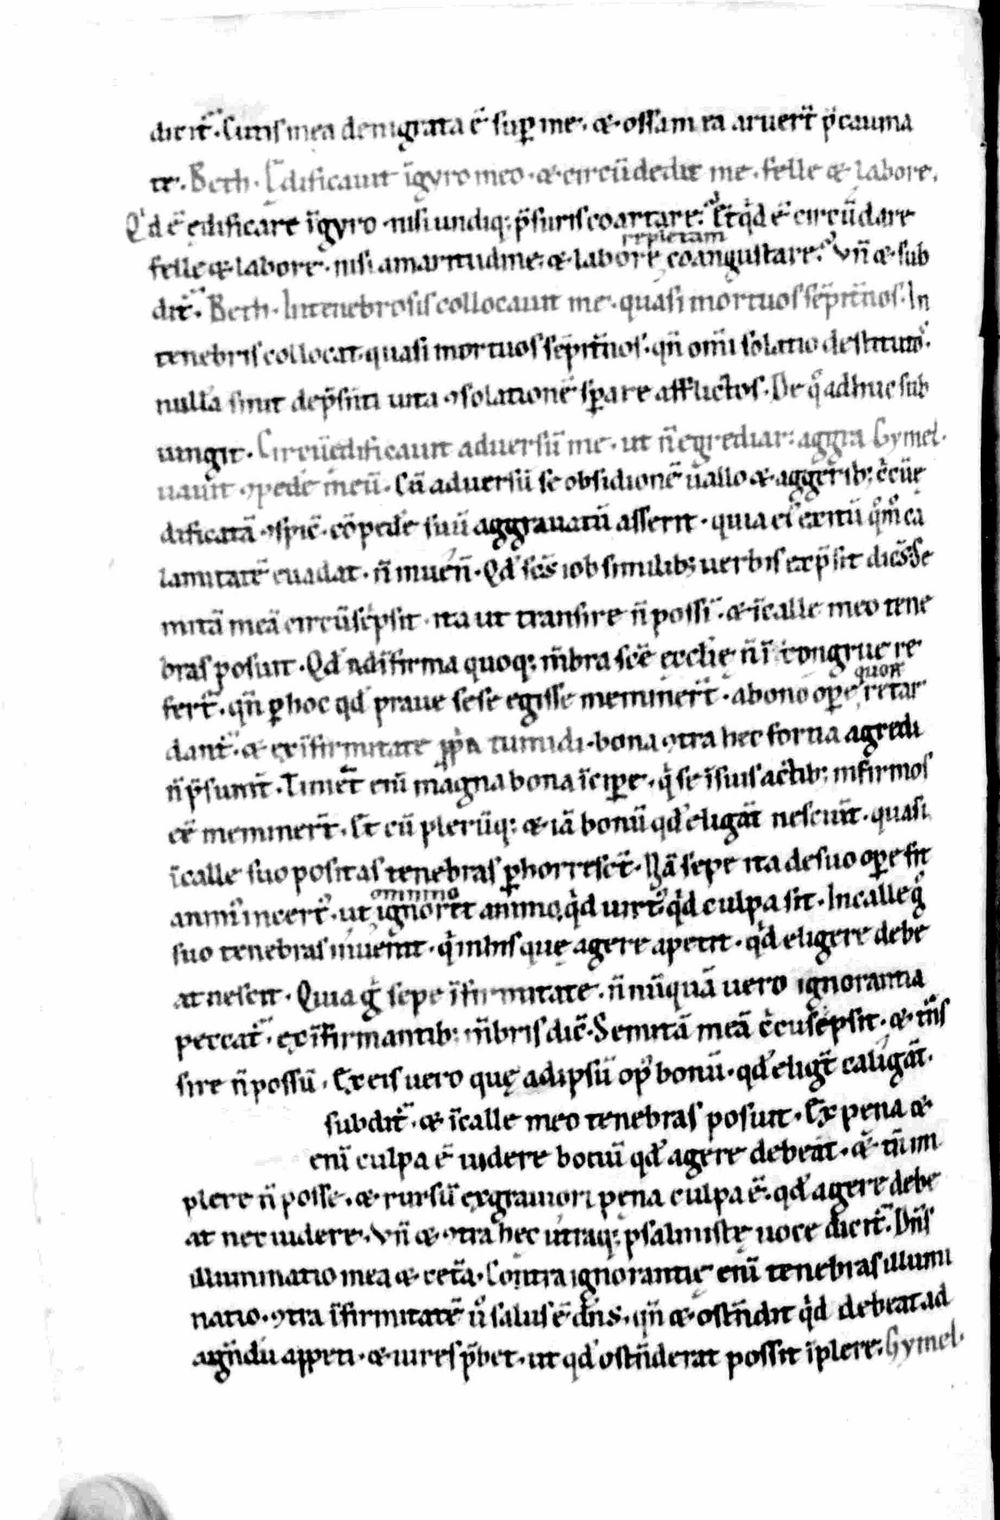 dicit̃. Cutis mea denigrata ẽ sup̱ me. & ossa m ea aruer̃t p̃cauma
te. Beth. Edificauit ĩgyro meo. & circũdedit me. felle & labore.
Qđ ẽ ędificare ĩgyro. nisi undiq; p̃suris coartare? Et qđ ẽ circũdare
felle & labore. nisi amaritudine. & labore coangustare? Vñ & sub
repletam
dit̃. Beth. In tenebrosis collocauit me. quasi mortuos sẽpit̃nos. In
tenebris collocat. quasi mortuos sẽpit̃nos. qñ om̃i solatio destituto.
nulla sinit de p̃sinti uita ꝯsolationẽ sp̱are afflictos. De qͦ adhuc sub
iungit. Circũedificauit aduersũ me. ut ñ egrediar: aggra Gymel.
uauit ꝯpedẽ meũ. Cũ aduersũ se obsidionẽ uallo & aggerib; c̃cũe
dificatã ꝯspic̃. cõpedẽ suũ aggrauatũ asserit. quia ei exitũ qͦm̊ ca
lamitatẽ euadat. ñ inueñ. Qđ sc̃s iob similib; uerbis exp̃sit dic̃s. Se
mitã meã circũsepsit. ita ut transire ñ possĩ. & ĩcalle meo tene
bras posuit. Qđ ad ĩfirma quoq; m̃bra scẽ ecclię ñ ĩcongrue re
fert̃. qñ p̱ hoc qđ praue sese egisse meminer̃t. abono op̱e retar
quoꝗ
dant̃. & ex ĩfirmitate p̱p̃a tumidi. bona ꝯtra hec fortia agredi
ñ p̃sumt̃. Timẽt enĩ magna bona ĩcip̱e. qͥ se ĩ suis actib; infirmos
eẽ meminer̃t. Et cũ plerũq; & iã bonũ qđ eligãt nesciũt. quasi
ĩcalle suo positas tenebras p̱horresct̃. Nã sepe ita de suo op̱e fit
animꝰ incert̃. ut ignoret animo, qđ uirtꝰ. qđ culpa sit. In calle g̊
omnino
suo tenebras inuenit. qͥ in his quę agere apetit. qđ eligere debe
at nescit. Quia g̊ sepe ĩfirmitate. ñ nũquã uero ignorantia
peccat̃. ex ĩfirmantib; m̃bris dic̃. Semitã meã c̃cũsepsit. & tñs
sire ñ possũ. Ex eis uero quę ad ipsũ opꝰ bonũ. qđ eligt̃ caligãt.
subdit̃. & ĩcalle meo tenebras posuit. Ex pena &
enĩ culpa ẽ uidere bonũ qđ agere debeãt. & tñ im
plere ñ posse. & rursũ ex grauiori pena culpa ẽ. qđ agere debe
at nec uidere. Vñ & ꝯtra hec utraq; psalmistę uoce dicit̃. Dñs
illuminatio mea & cetã. Contra ignorantię enĩ tenebras illumi
natio. ꝯtra ĩfirmitatẽ ů salus ẽ dñs. qñ & ostñdit qđ debeat ad
agñdũ appeti. & uires p̃bet. ut qđ ostñderat possit ĩplere. Gymel.